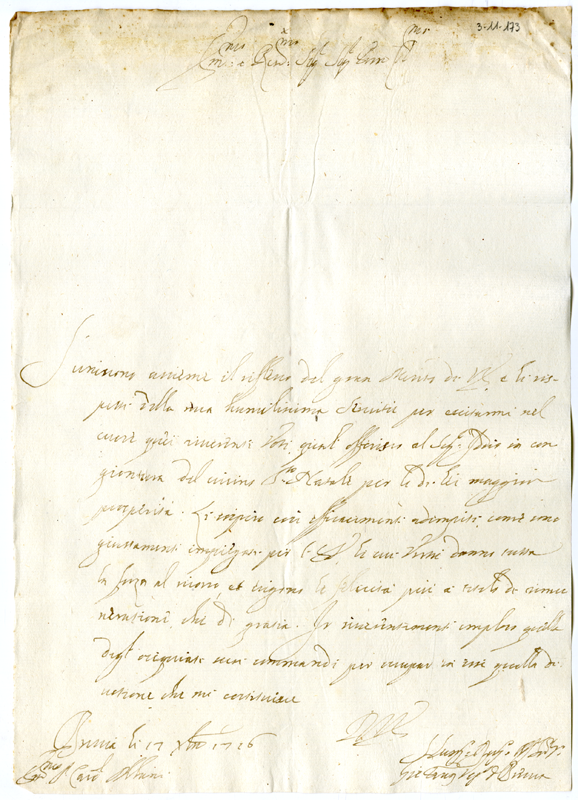 3-11-173
Em.mo e Rev.mo Sig.r Sig.r Pron Col.mo
S'uniscono assieme il riflesso del gran Merito di V.E. e li ris-
petti della mia humilissima Servitù per eccitarmi nel
cuore quei riverenti Voti, quali offerisco al Sig.r Iddio in con
giontura del vicino S.to Natale per le di lei maggiori
prosperità. Li sospiro così efficacemente adempiti, come sono
giustamente impiegati per l'E.V. le cui Virtù danno tutta
la forza al merito, et esigono le felicità più a titolo di remu
nerazione, che di grazia. Io riverentemente imploro quella
degl'ossequiati suoi commandi per occupar in essi quella di
votione che mi costituisce
D.V.E.
Li 17 Xbre 1716
Em.mo S. Card. Albani